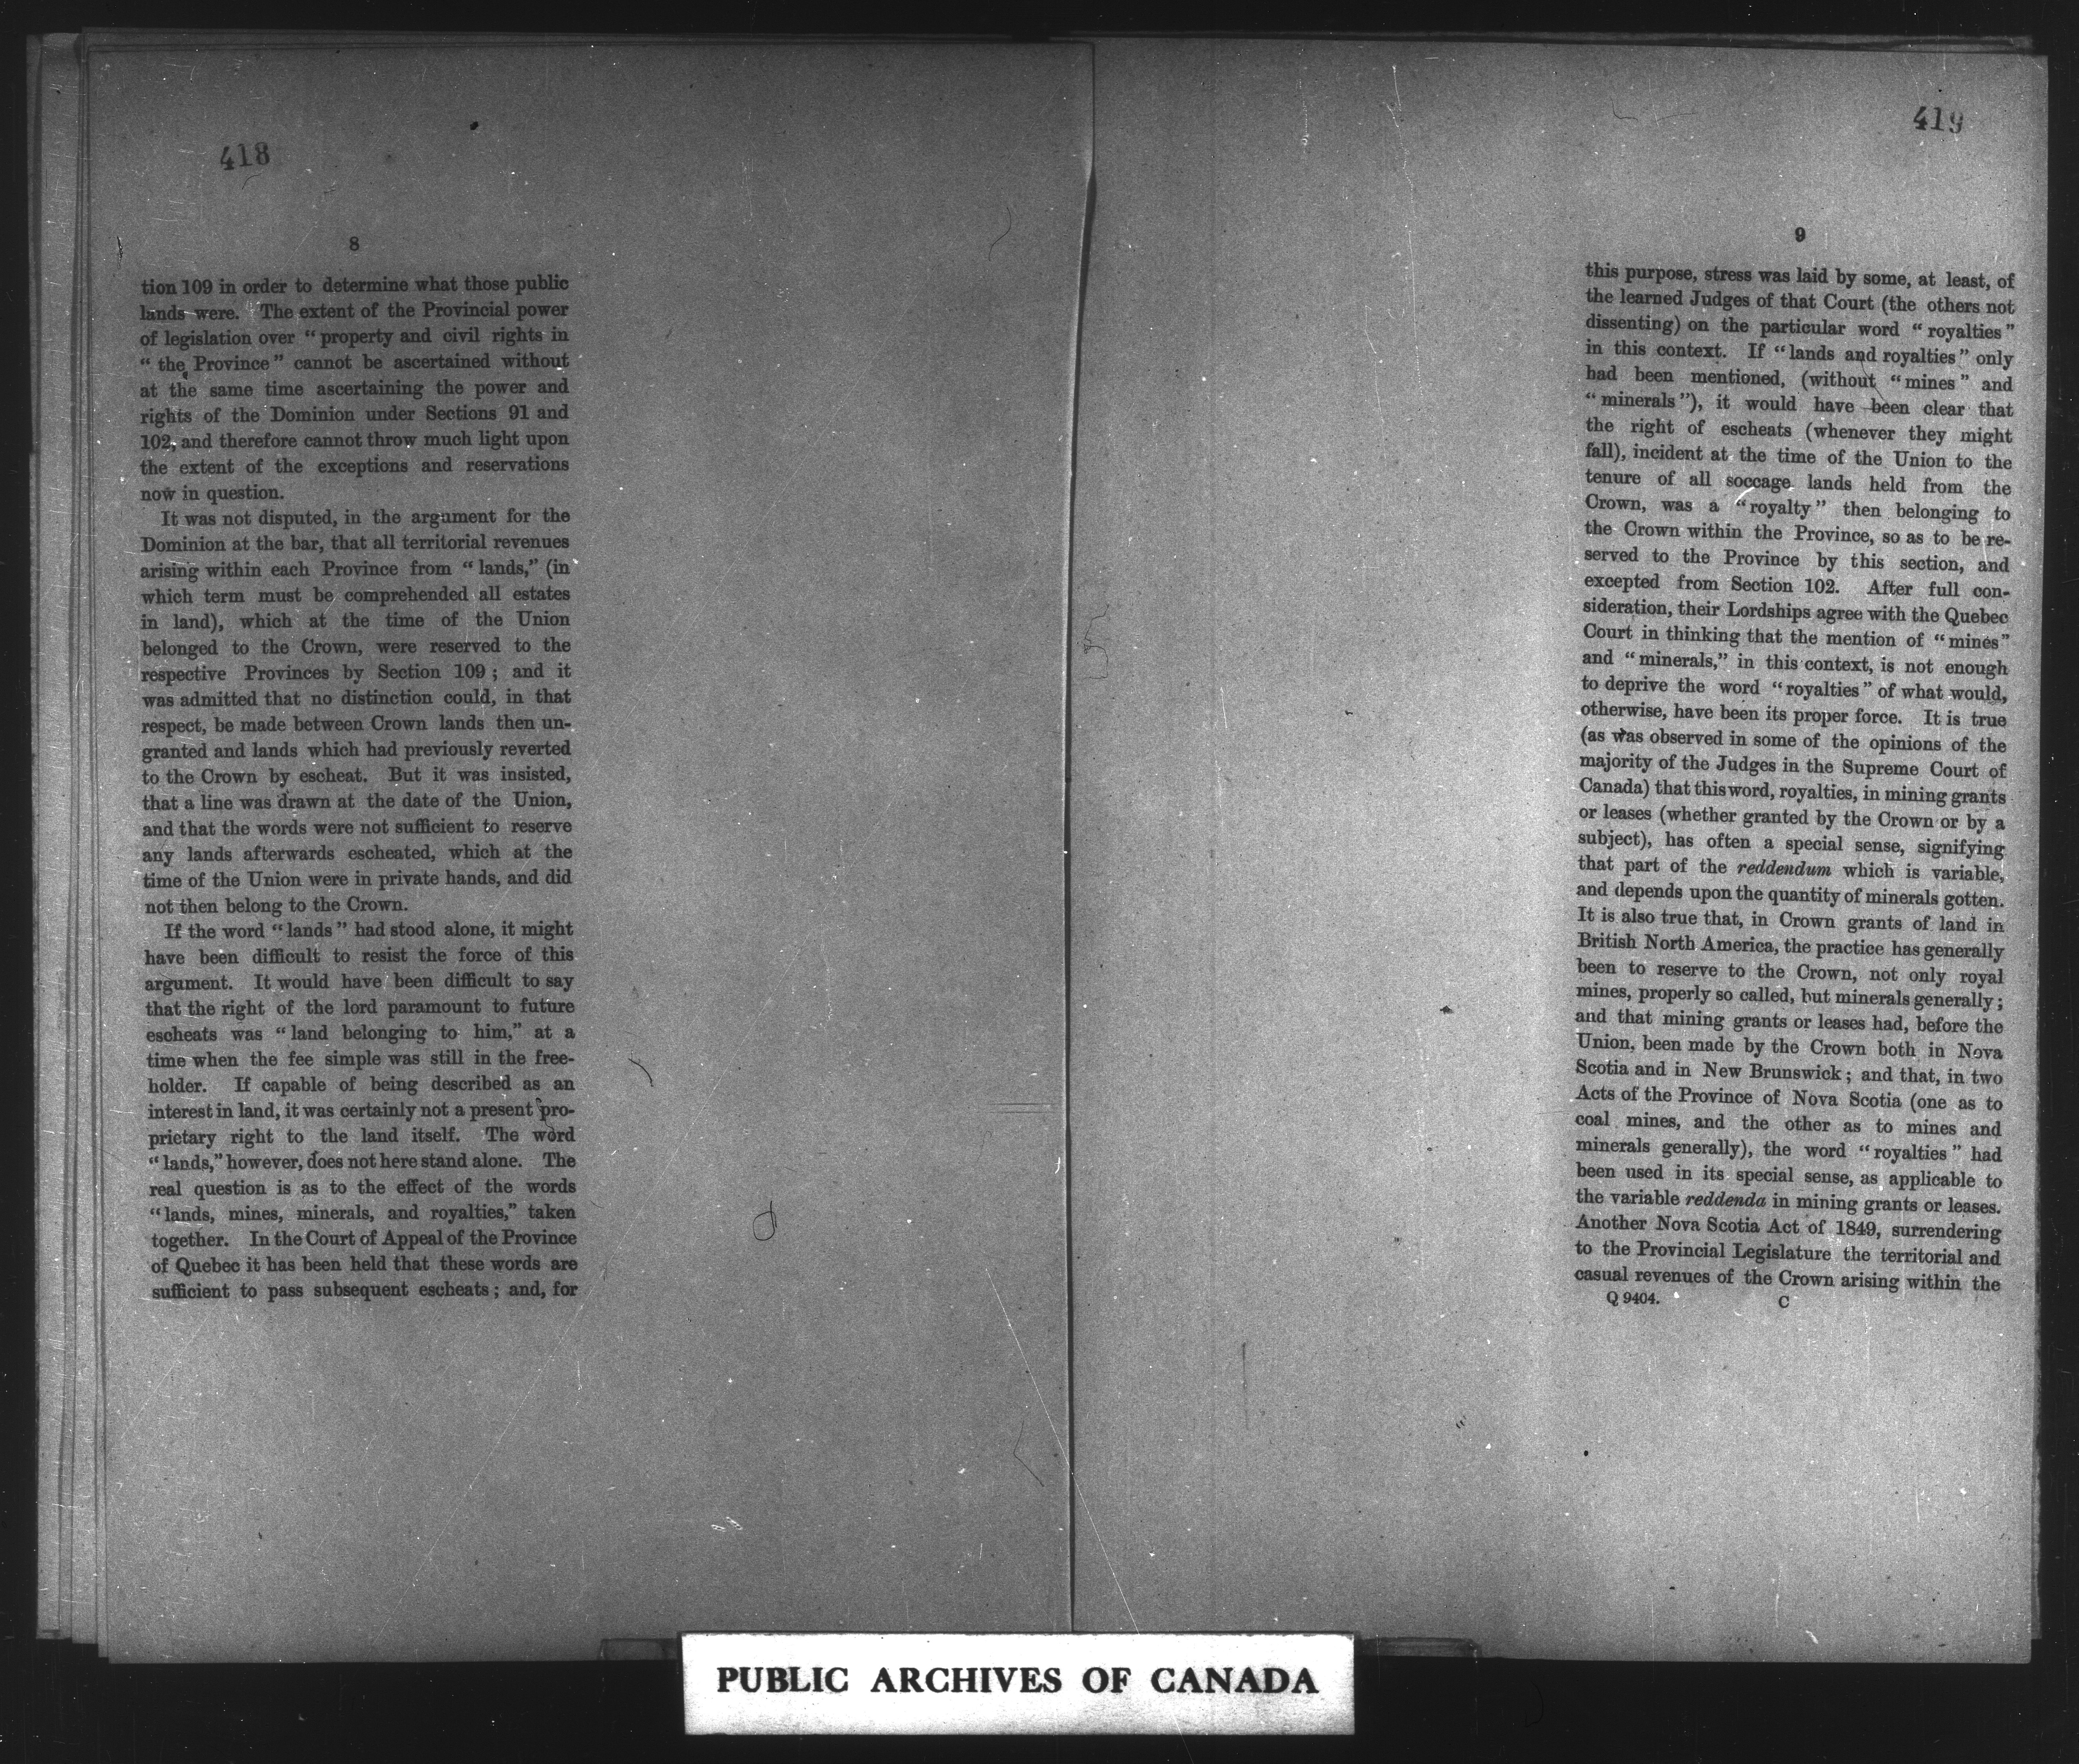 418
8
tion 109 in order to determine what those public
lands were. The extent of the Provincial power
of legislation over “ property and civil rights in
“ the Province ” cannot be ascertained without
at the same time ascertaining the power and
rights of the Dominion under Sections 91 and
102, and therefore cannot throw much light upon
the extent of the exceptions and reservations
now in question.
It was not disputed, in the argument for the
Dominion at the bar, that all territorial revenues
arising within each Province from “ lands,” (in
which term must be comprehended all estates
in land), which at the time of the Union
belonged to the Crown, were reserved to the
respective Provinces by Section 109 ; and it
was admitted that no distinction could, in that
respect, be made between Crown lands then un-
granted and lands which had previously reverted
to the Crown by escheat. But it was insisted,
that a line was drawn at the date of the Union,
and that the words were not sufficient to reserve
any lands afterwards escheated, which at the
time of the Union were in private hands, and did
not then belong to the Crown.
If the word “ lands ” had stood alone, it might
have been difficult to resist the force of this
argument. It would have been difficult to say
that the right of the lord paramount to future
escheats was “ land belonging to him,” at a
time when the fee simple was still in the free-
holder. If capable of being described as an
interest in land, it was certainly not a present pro-
prietary right to the land itself. The word
“ lands,” however, does not here stand alone. The
real question is as to the effect of the words
“ lands, mines, minerals, and royalties,” taken
together. In the Court of Appeal of the Province
of Quebec it has been held that these words are
sufficient to pass subsequent escheats ; and, for
419
9
this purpose, stress was laid by some, at least, of
the learned Judges of that Court (the others not
dissenting) on the particular word “ royalties ”
in this context. If “ lands and royalties ” only
had been mentioned, (without “ mines ” and
“ minerals ”), it would have been clear that
the right of escheats (whenever they might
fall), incident at the time of the Union to the
tenure of all soccage lands held from the
Crown, was a “ royalty ” then belonging to
the Crown within the Province, so as to be re-
served to the Province by this section, and
excepted from Section 102. After full con-
sideration, their Lordships agree with the Quebec
Court in thinking that the mention of “ mines ”
and “ minerals,” in this context, is not enough
to deprive the word “ royalties ” of what would,
otherwise, have been its proper force. It is true
(as was observed in some of the opinions of the
majority of the Judges in the Supreme Court of
Canada) that this word, royalties, in mining grants
or leases (whether granted by the Crown or by a
subject), has often a special sense, signifying
that part of the reddendum which is variable,
and depends upon the quantity of minerals gotten.
It is also true that, in Crown grants of land in
British North America, the practice has generally
been to reserve to the Crown, not only royal
mines, properly so called, but minerals generally ;
and that mining grants or leases had, before the
Union, been made by the Crown both in Nova
Scotia and in New Brunswick ; and that, in two
Acts of the Province of Nova Scotia (one as to
coal mines, and the other as to mines and
minerals generally), the word “ royalties ” had
been used in its special sense, as applicable to
the variable reddenda in mining grants or leases.
Another Nova Scotia Act of 1849, surrendering
to the Provincial Legislature the territorial and
casual revenues of the Crown arising within the
Q 9404. C
PUBLIC ARCHIVES OF CANADA